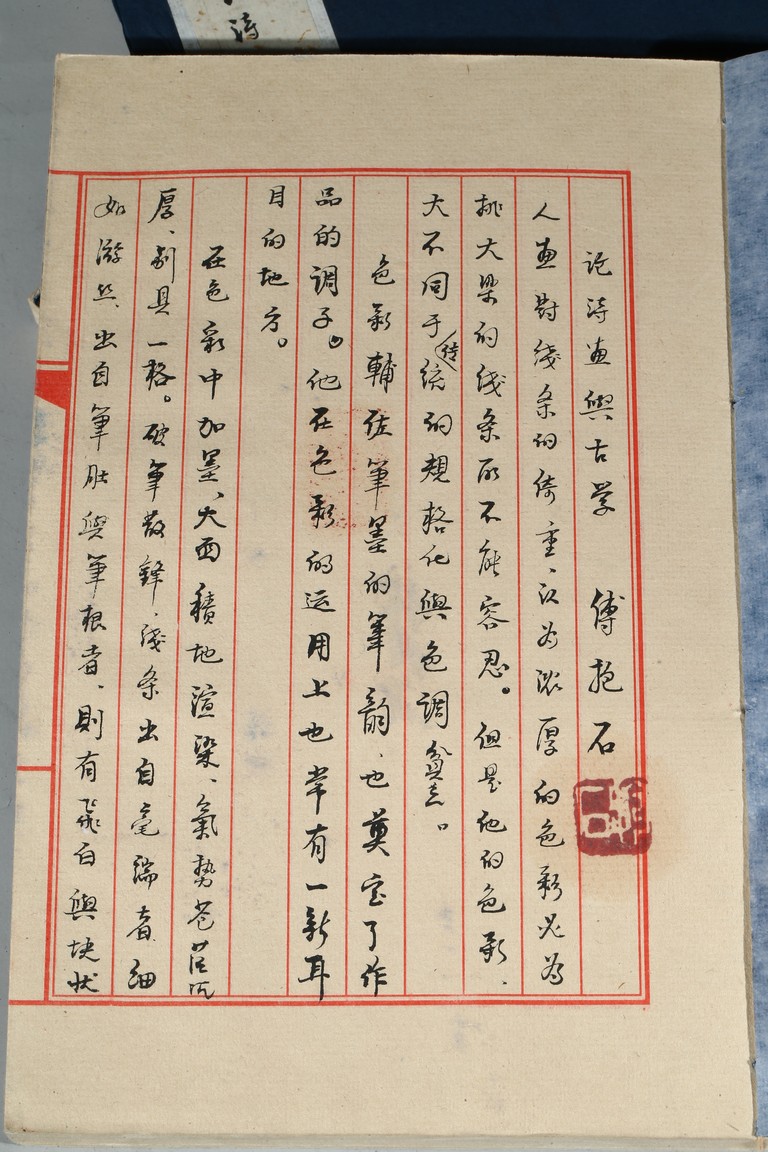 诗
论诗画與古学 傅抱石
人画對线条的倚重、认为浓厚的色彩必为
挑大梁的线条所不能容忍。但是他的色彩、
大不同于传统的规格化與色调贫乏。
色彩輔佐筆墨的筆韵、也奠定了作
品的调子。他在色彩的运用上也常有一新耳
目的地方。
在色彩中加墨、大面積地渲染、氣势苍茫沉
厚、别具一格。破筆散鋒、线条出自毫端者細
如游丝、出自筆肚與筆根者、则有飛白與块状